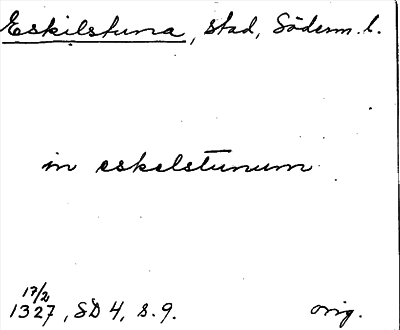 Eskilstuna, stad, Söderm. l.
in eskelstunum
17/2
1327, SD 4, s. 9. orig.